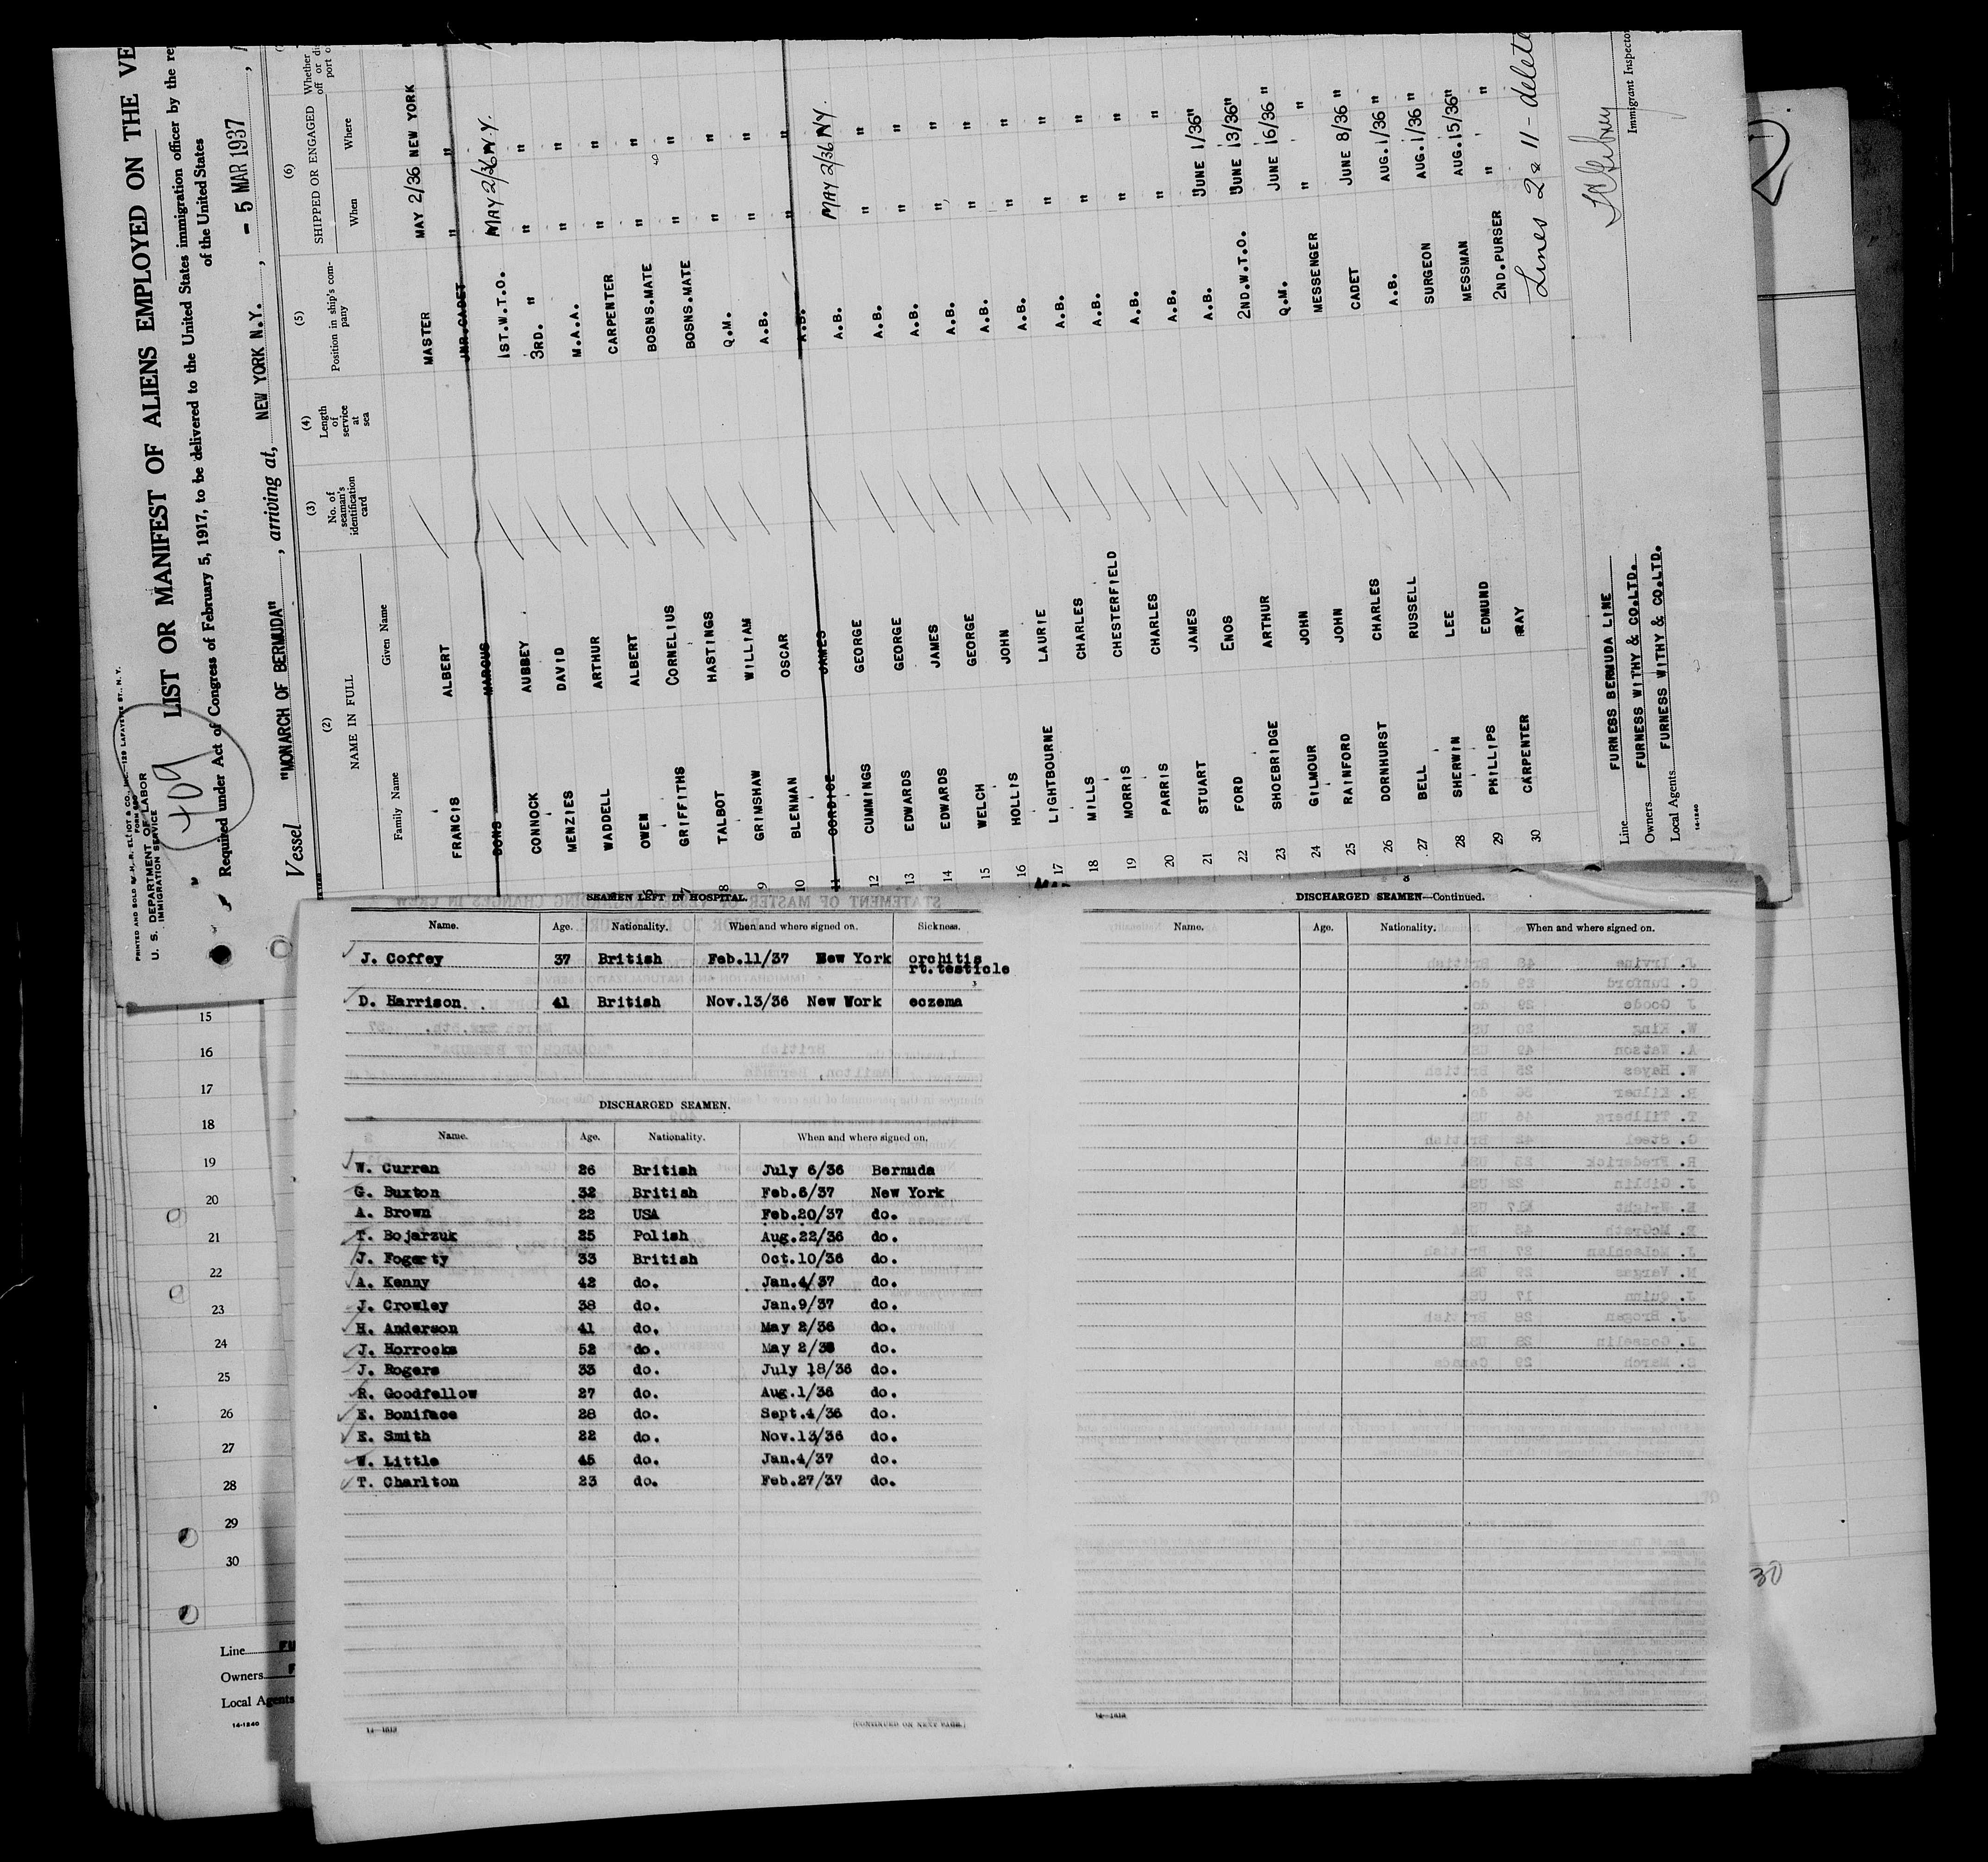 PRINTED AND SOLD BY H. R. ELLIOT & CO., INC.—129 LAFAYETTE ST., N. Y.
U. S. DEPARTMENT OF LABOR
IMMIGRATION SERVICE
409
LIST OR MANIFEST OF ALIENS EMPLOYED ON THE VE
Required under Act of Congress of February 5, 1917, to be delivered to the United States immigration officer by the re
of the United States
Vessel "MONARCH OF BERMUDA" , arriving at, NEW YORK N.Y. , - 5 MAR 1937 ,
(2) (3) (4) (5) (6)
NAME IN FULL No. of seaman's identification card Length of service at sea Position in ship's company SHIPPED OR ENGAGED Whether
Family Name Given Name When Where
FRANCIS ALBERT MASTER MAY 2/36 NEW YORK
DONS MARCUS JNR.CADET " "
CONNOCK AUBBEY 1ST.W.T.O. MAY 2/36 N.Y.
MENZIES DAVID 3RD. " " "
WADDELL ARTHUR M.A.A. " "
6 OWEN ALBERT CARPENTER " "
7 GRIFFITHS CORNELIUS BOSNS.MATE " "
8 TALBOT HASTINGS BOSNS.MATE " "
9 GRIMSHAW WILLIAM Q.M. " "
10 BLENMAN OSCAR A.B. " "
11 CORDICE JAMES A.B. " "
12 CUMMINGS GEORGE A.B. MAY 2/36 NY.
13 EDWARDS GEORGE A.B. " "
14 EDWARDS JAMES A.B. " "
15 WELCH GEORGE A.B. " "
16 HOLLIS JOHN A.B. " "
17 LIGHTBOURNE LAURIE A.B. " "
18 MILLS CHARLES A.B. " "
19 MORRIS CHESTERFIELD A.B. " "
20 PARRIS CHARLES A.B. " "
21 STUART JAMES A.B. " "
22 FORD ENOS A.B. JUNE 1/36 "
23 SHOEBRIDGE ARTHUR 2ND.W.T.O. JUNE 13/36 "
24 GILMOUR JOHN Q.M. JUNE 16/36 "
25 RAINFORD JOHN MESSENGER " "
26 DORNHURST CHARLES CADET JUNE 8/36 "
27 BELL RUSSELL A.B. AUG.1/36 "
28 SHERWIN LEE SURGEON AUG.1/36 "
29 PHILLIPS EDMUND MESSMAN AUG.15/36 "
30 CARPENTER RAY 2ND.PURSER " "
Lines 2 & 11 - delete
Immigrant Inspector
Line FURNESS BERMUDA LINE
Owners FURNESS WITHY & CO.LTD.
Local Agents FURNESS WITHY & CO.LTD.
14-1240
SEAMEN LEFT IN HOSPITAL.
Name. Age. Nationality. When and where signed on. Sickness.
J. Coffey 37 British Feb.11/37 New York orchitis
rt.testicle
D. Harrison. 41 British Nov.13/36 New York eczema
DISCHARGED SEAMEN.
Name. Age. Nationality. When and where signed on.
W. Curran 26 British July 6/36 Bermuda
G. Buxton 32 British Feb.6/37 New York
A. Brown 22 USA Feb.20/37 do.
T. Bojarzuk 25 Polish Aug.22/36 do.
J. Fogerty 33 British Oct.10/36 do.
A. Kenny 42 do. Jan.4/37 do.
J. Crowley 38 do. Jan.9/37 do.
H. Anderson 41 do. May 2/36 do.
J. Horrocks 52 do. May 2/36 do.
J. Rogers 33 do. July 18/36 do.
R. Goodfellow 27 do. Aug.1/36 do.
E. Boniface 28 do. Sept.4/36 do.
E. Smith 22 do. Nov.13/36 do.
W. Little 45 do. Jan.4/37 do.
T. Charlton 23 do. Feb.27/37 do.
14—1813
(CONTINUED ON NEXT PAGE.)
DISCHARGED SEAMEN—Continued.
Name. Age. Nationality. When and where signed on.
14—1813
15
16
17
18
19
20
21
22
23
24
25
26
27
28
29
30
Line
Owners
Local Agents
14-1240
2
30